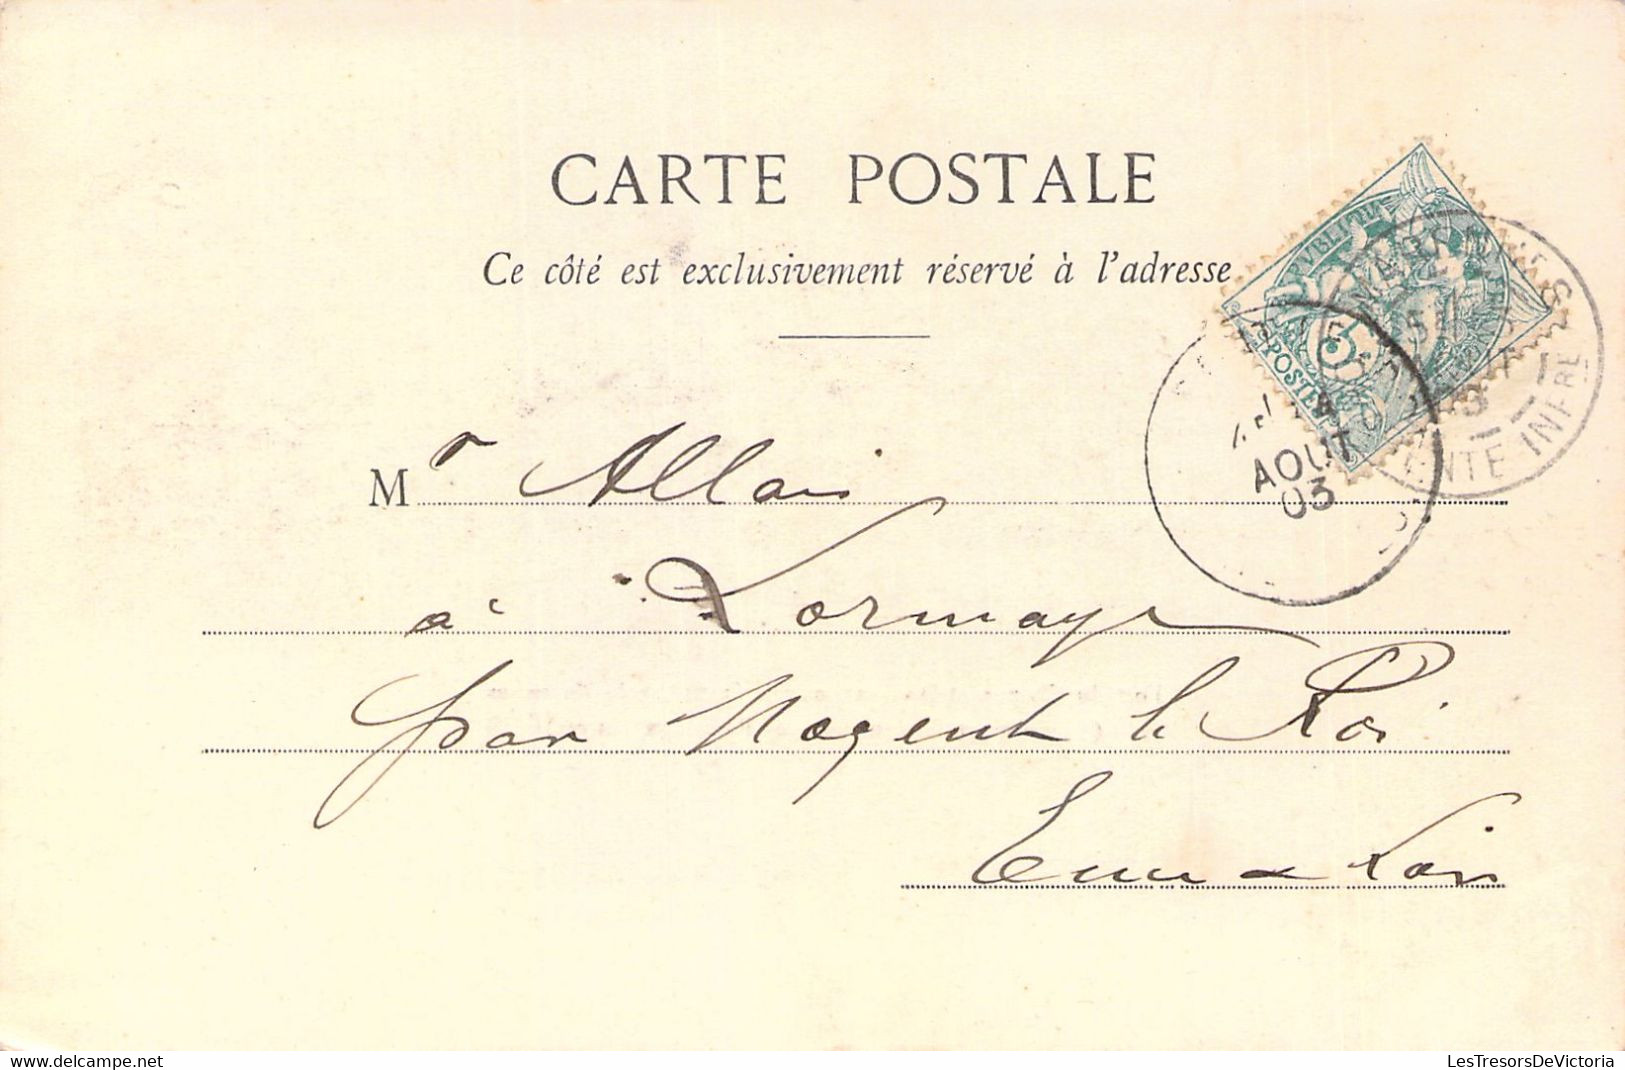 CARTE POSTALE
Ce côté est exclusivement réservé à l'adresse
RÉPUBLIQUE
POSTES
5
AOUT
03
ENTE INFRE
Mr Allais
à Lormaye
par Nogent le Roi
Eure & Loir
www.delcampe.net
LesTresorsDeVictoria